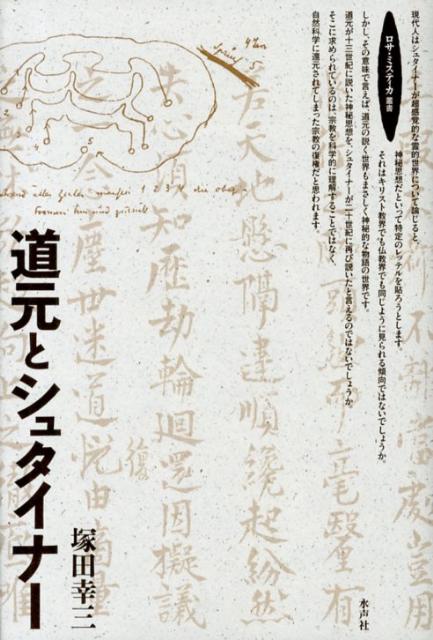 ロサ・ミスティカ叢書
現代人はシュタイナーが超感覚的な霊的世界について論じると、
神秘思想だといって特定のレッテルを貼ろうとします。
それはキリスト教界でも仏教界でも同じように見られる傾向ではないでしょうか。
しかし、その意味で言えば、道元の説く世界もまさしく神秘的な物語の世界です。
道元が十三世紀に説いた神秘思想を、シュタイナーが二十世紀に再び説いたと言えるのではないでしょうか。
そこに求められているのは、宗教を科学的に理解することではなく、
自然科学に還元されてしまった宗教の復権だと思われます。
毫釐有
懸隔違順纔起紛然
失心須知歴劫輪廻還因擬議
世迷道
道元とシュタイナー
塚田幸三
水声社